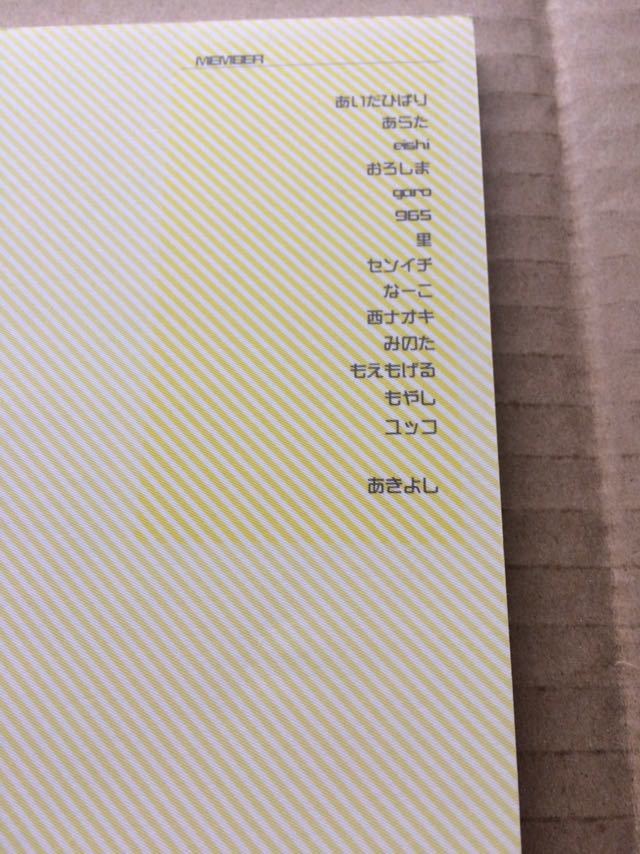 MEMBER
あいだひばり
あらた
eishi
おろしま
garo
965
里
センイチ
なーこ
西ナオキ
みのた
もえもげる
もやし
ユッコ
あきよし